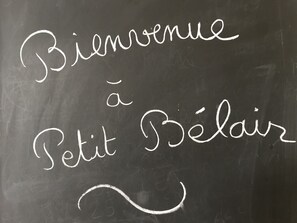 Bienvenue
à
Petit Bélair